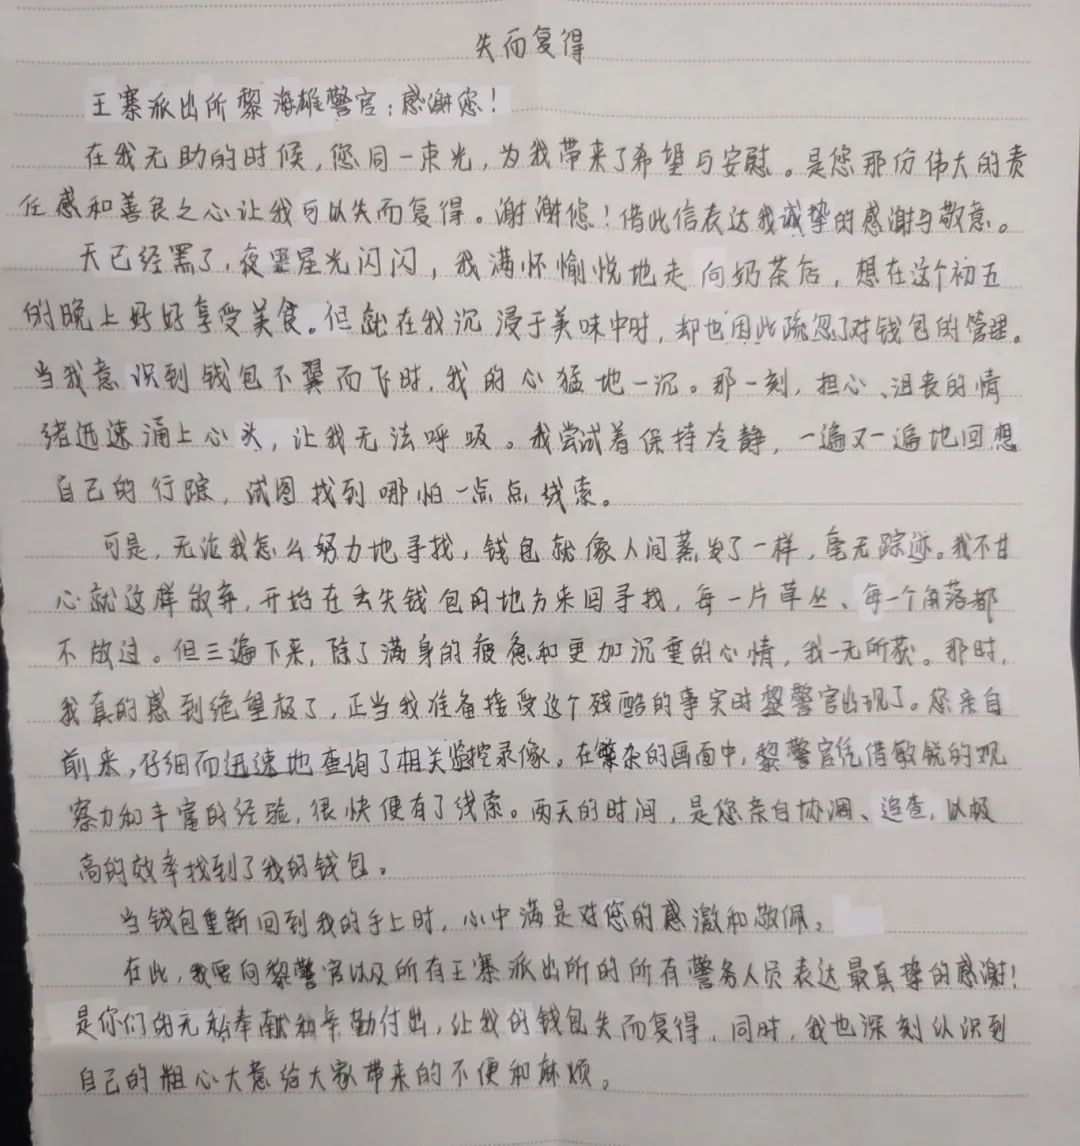 失而复得
王寨派出所黎海雄警官：感谢您！
在我无助的时候，您同一束光，为我带来了希望与安慰。是您那份伟大的责
任感和善良之心让我可以失而复得。谢谢您！借此信表达我诚挚的感谢与敬意。
天已经黑了，夜里星光闪闪，我满怀愉悦地走向奶茶店，想在这个初五
的晚上好好享受美食。但就在我沉浸于美味中时，却也因此疏忽了对钱包的管理。
当我意识到钱包不翼而飞时，我的心猛地一沉。那一刻，担心、沮丧的情
绪迅速涌上心头，让我无法呼吸。我尝试着保持冷静，一遍又一遍地回想
自己的行踪，试图找到哪怕一点点线索。
可是，无论我怎么努力地寻找，钱包就像人间蒸发了一样，毫无踪迹。我不甘
心就这样放弃，开始在丢失钱包的地方来回寻找，每一片草丛、每一个角落都
不放过。但三遍下来，除了满身的疲惫和更加沉重的心情，我一无所获。那时，
我真的感到绝望极了，正当我准备接受这个残酷的事实时黎警官出现了。您亲自
前来，仔细而迅速地查询了相关监控录像。在繁杂的画面中，黎警官凭借敏锐的观
察力和丰富的经验，很快便有了线索。两天的时间，是您亲自协调、追查，以极
高的效率找到了我的钱包。
当钱包重新回到我的手上时，心中满是对您的感激和敬佩。
在此，我要向黎警官以及所有王寨派出所的所有警务人员表达最真挚的感谢！
是你们的无私奉献和辛勤付出，让我的钱包失而复得，同时，我也深刻认识到
自己的粗心大意给大家带来的不便和麻烦。